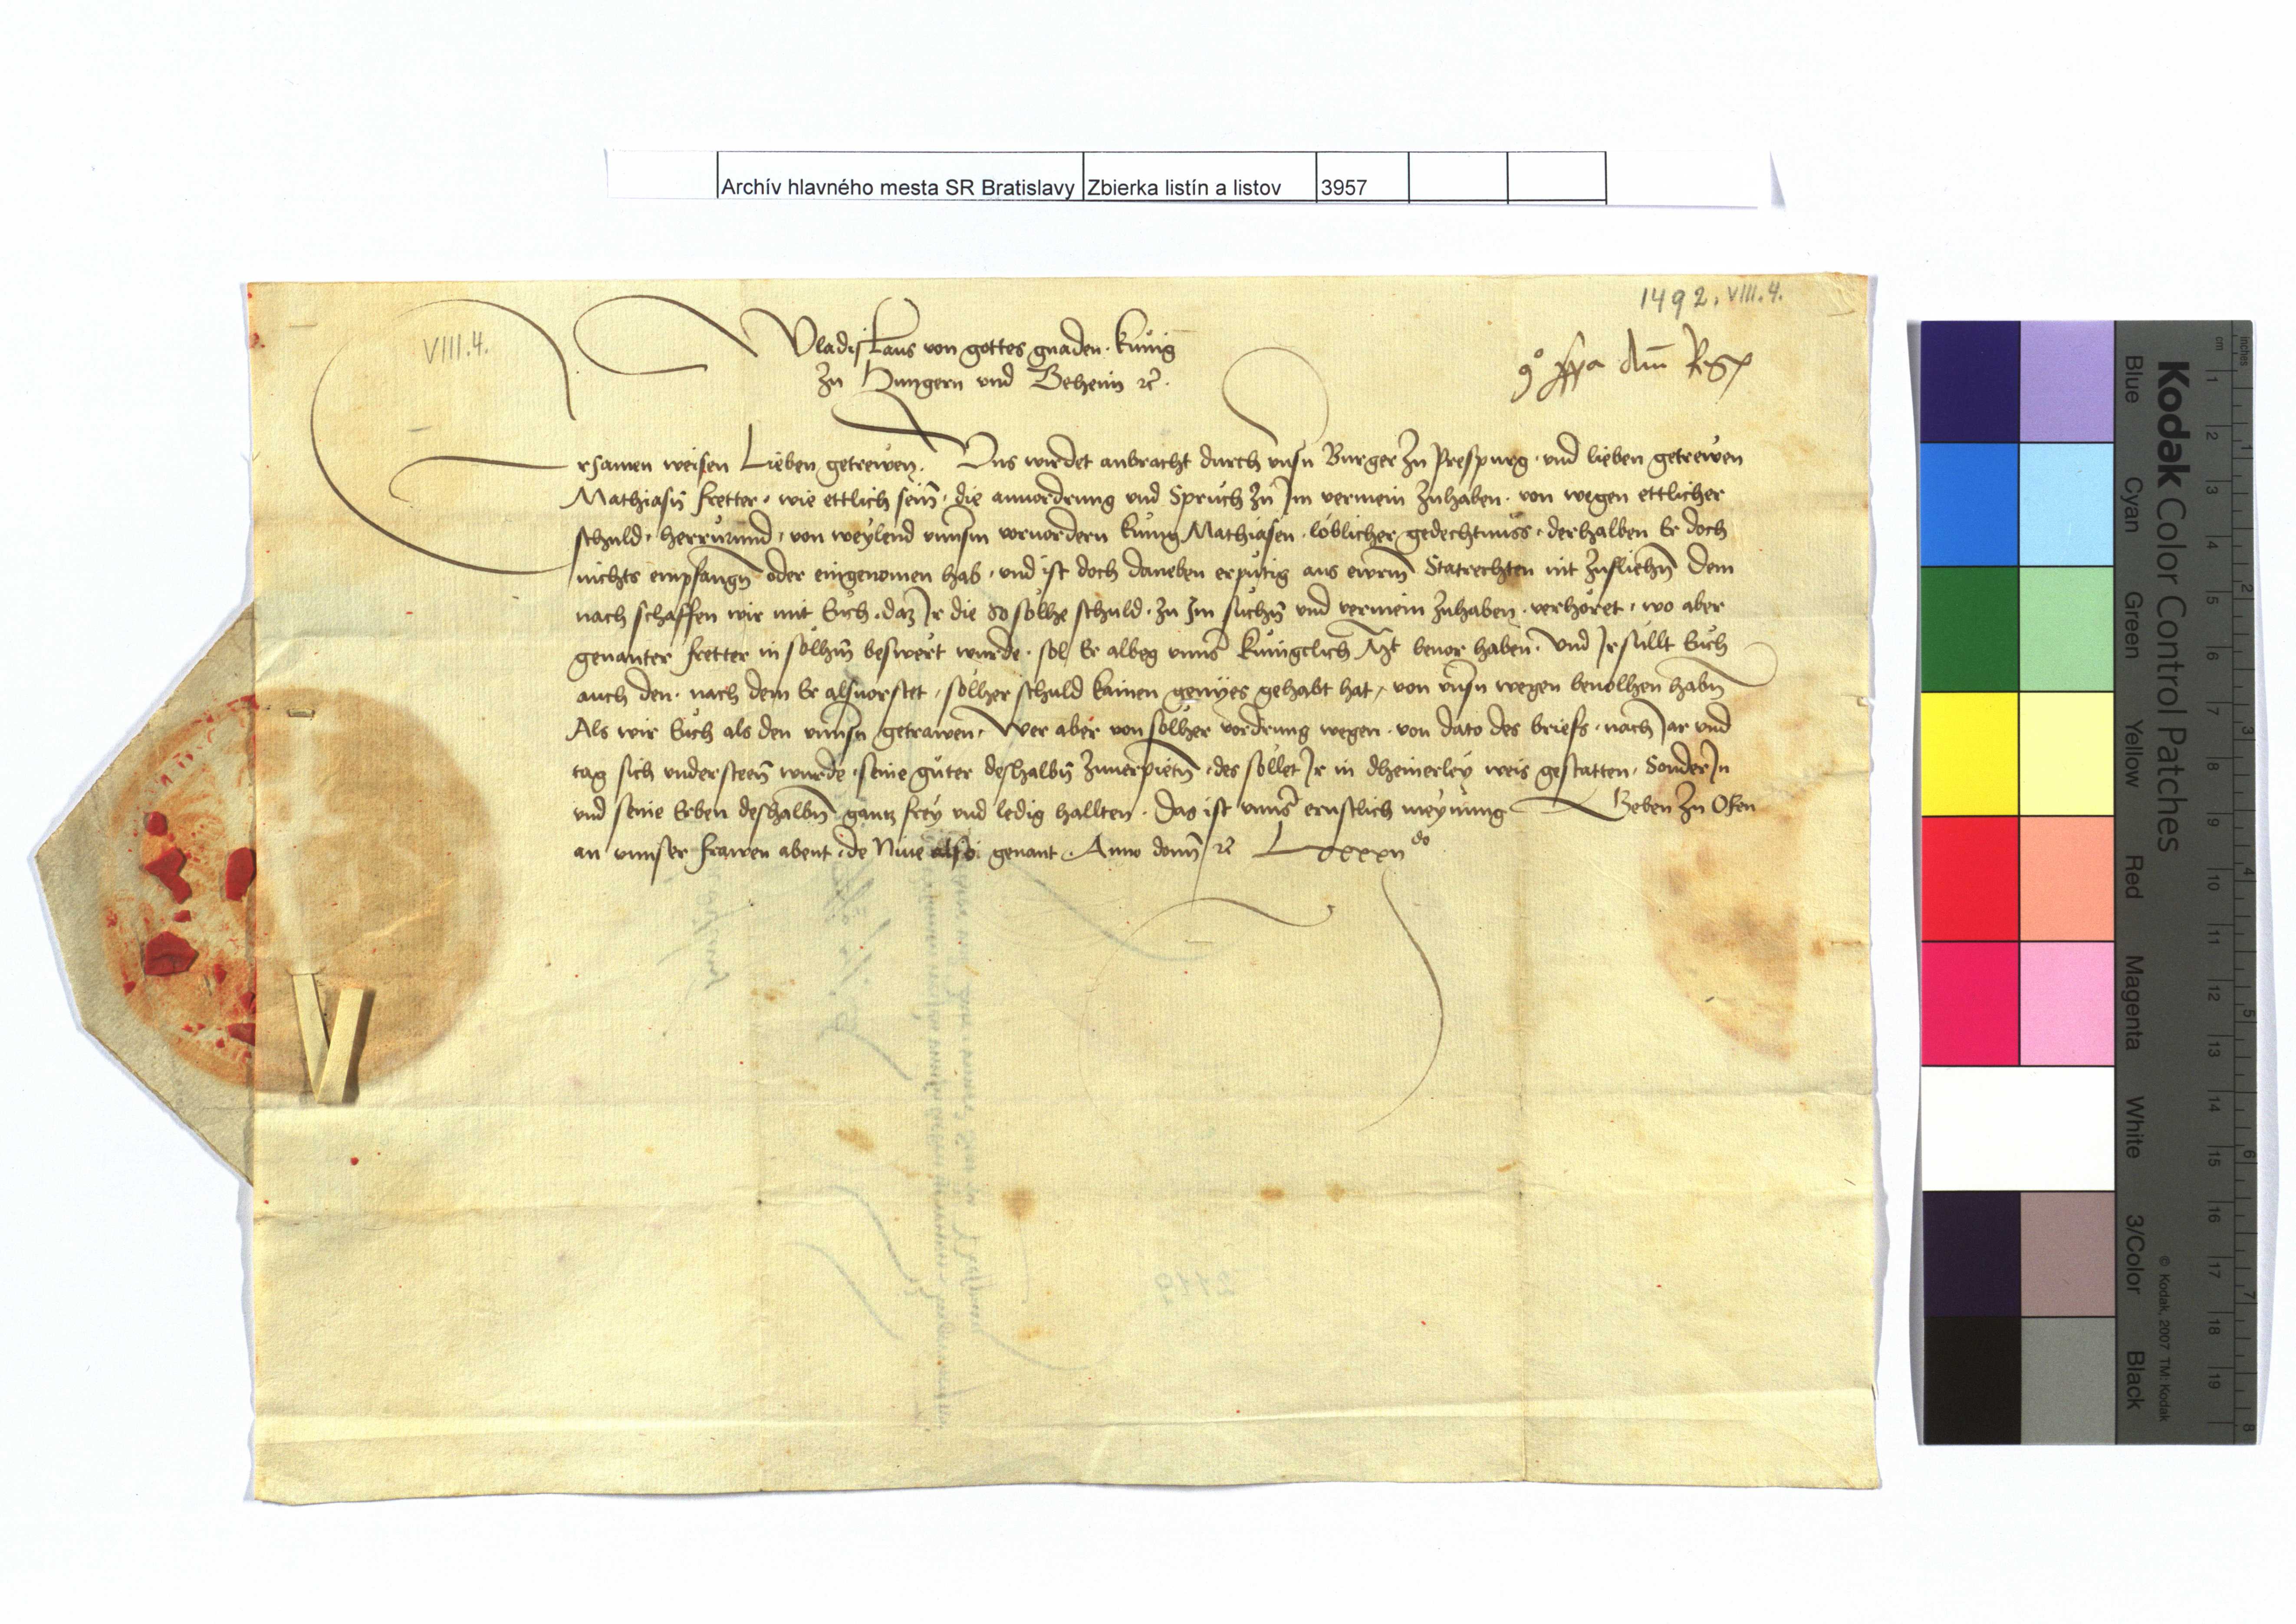 Archív hlavného mesta SR Bratislavy Zbierka listín a listov 3957
1492. VIII. 4.
VIII. 4.
Vladislaus von gottes gnaden. kunig
zu Hungern und Beheim
Ersamen weisen Lieben getrewen. Uns wirdet anbracht durch unsn Burger zu Prespurg. und lieben getrewen
Mathiasn fretter. wie ettlich sein. die anvordrung und Spruch zu Im vermein zuhaben. von wegen ettlicher
schuld. herrurund. von weylend unnsm vorvordern kunig Mathiasen. loblicher gedechtnuss. derhalben Er doch
nichts empfangn oder eingenomen hab. und ist doch daneben erputig aus ewrm Statrechten nit zufliehn Dem
nach schaffen wir mit Euch. daz Ir die so solhe schuld. zu Im suchn und vermein zuhaben. verhoret. wo aber
genanter fretter in solhm beswert wurde. sol Er albeg unns kuniglich bevor haben. Und Ir sullt Euch
auch den. nach dem Er alsvorstet. solher schuld kainen genyes gehabt hat. von unsn wegen bevolhen habn
Als wir Euch als den unnsn getrawen. Wer aber von solher vordrung wegen. von dato des briefs. nach Jar und
tag sich understeen wurde. seine guter deshalbn zuverpietn. des sollet Ir in dheinerley weis gestatten. Sonder In
und seine Erben deshalbn gantz frey und ledig hallten. Das ist unns ernstlich meynung Geben zu Ofen
an unnser frawen abent. de Nive also genant. Anno domi Lxxxxii do
Kodak Color Control Patches
Blue Cyan Green Yellow Red Magenta White 3/Color Black
© Kodak, 2007 TM: Kodak
inches 1 2 3 4 5 6 7 8
cm 1 2 3 4 5 6 7 8 9 10 11 12 13 14 15 16 17 18 19